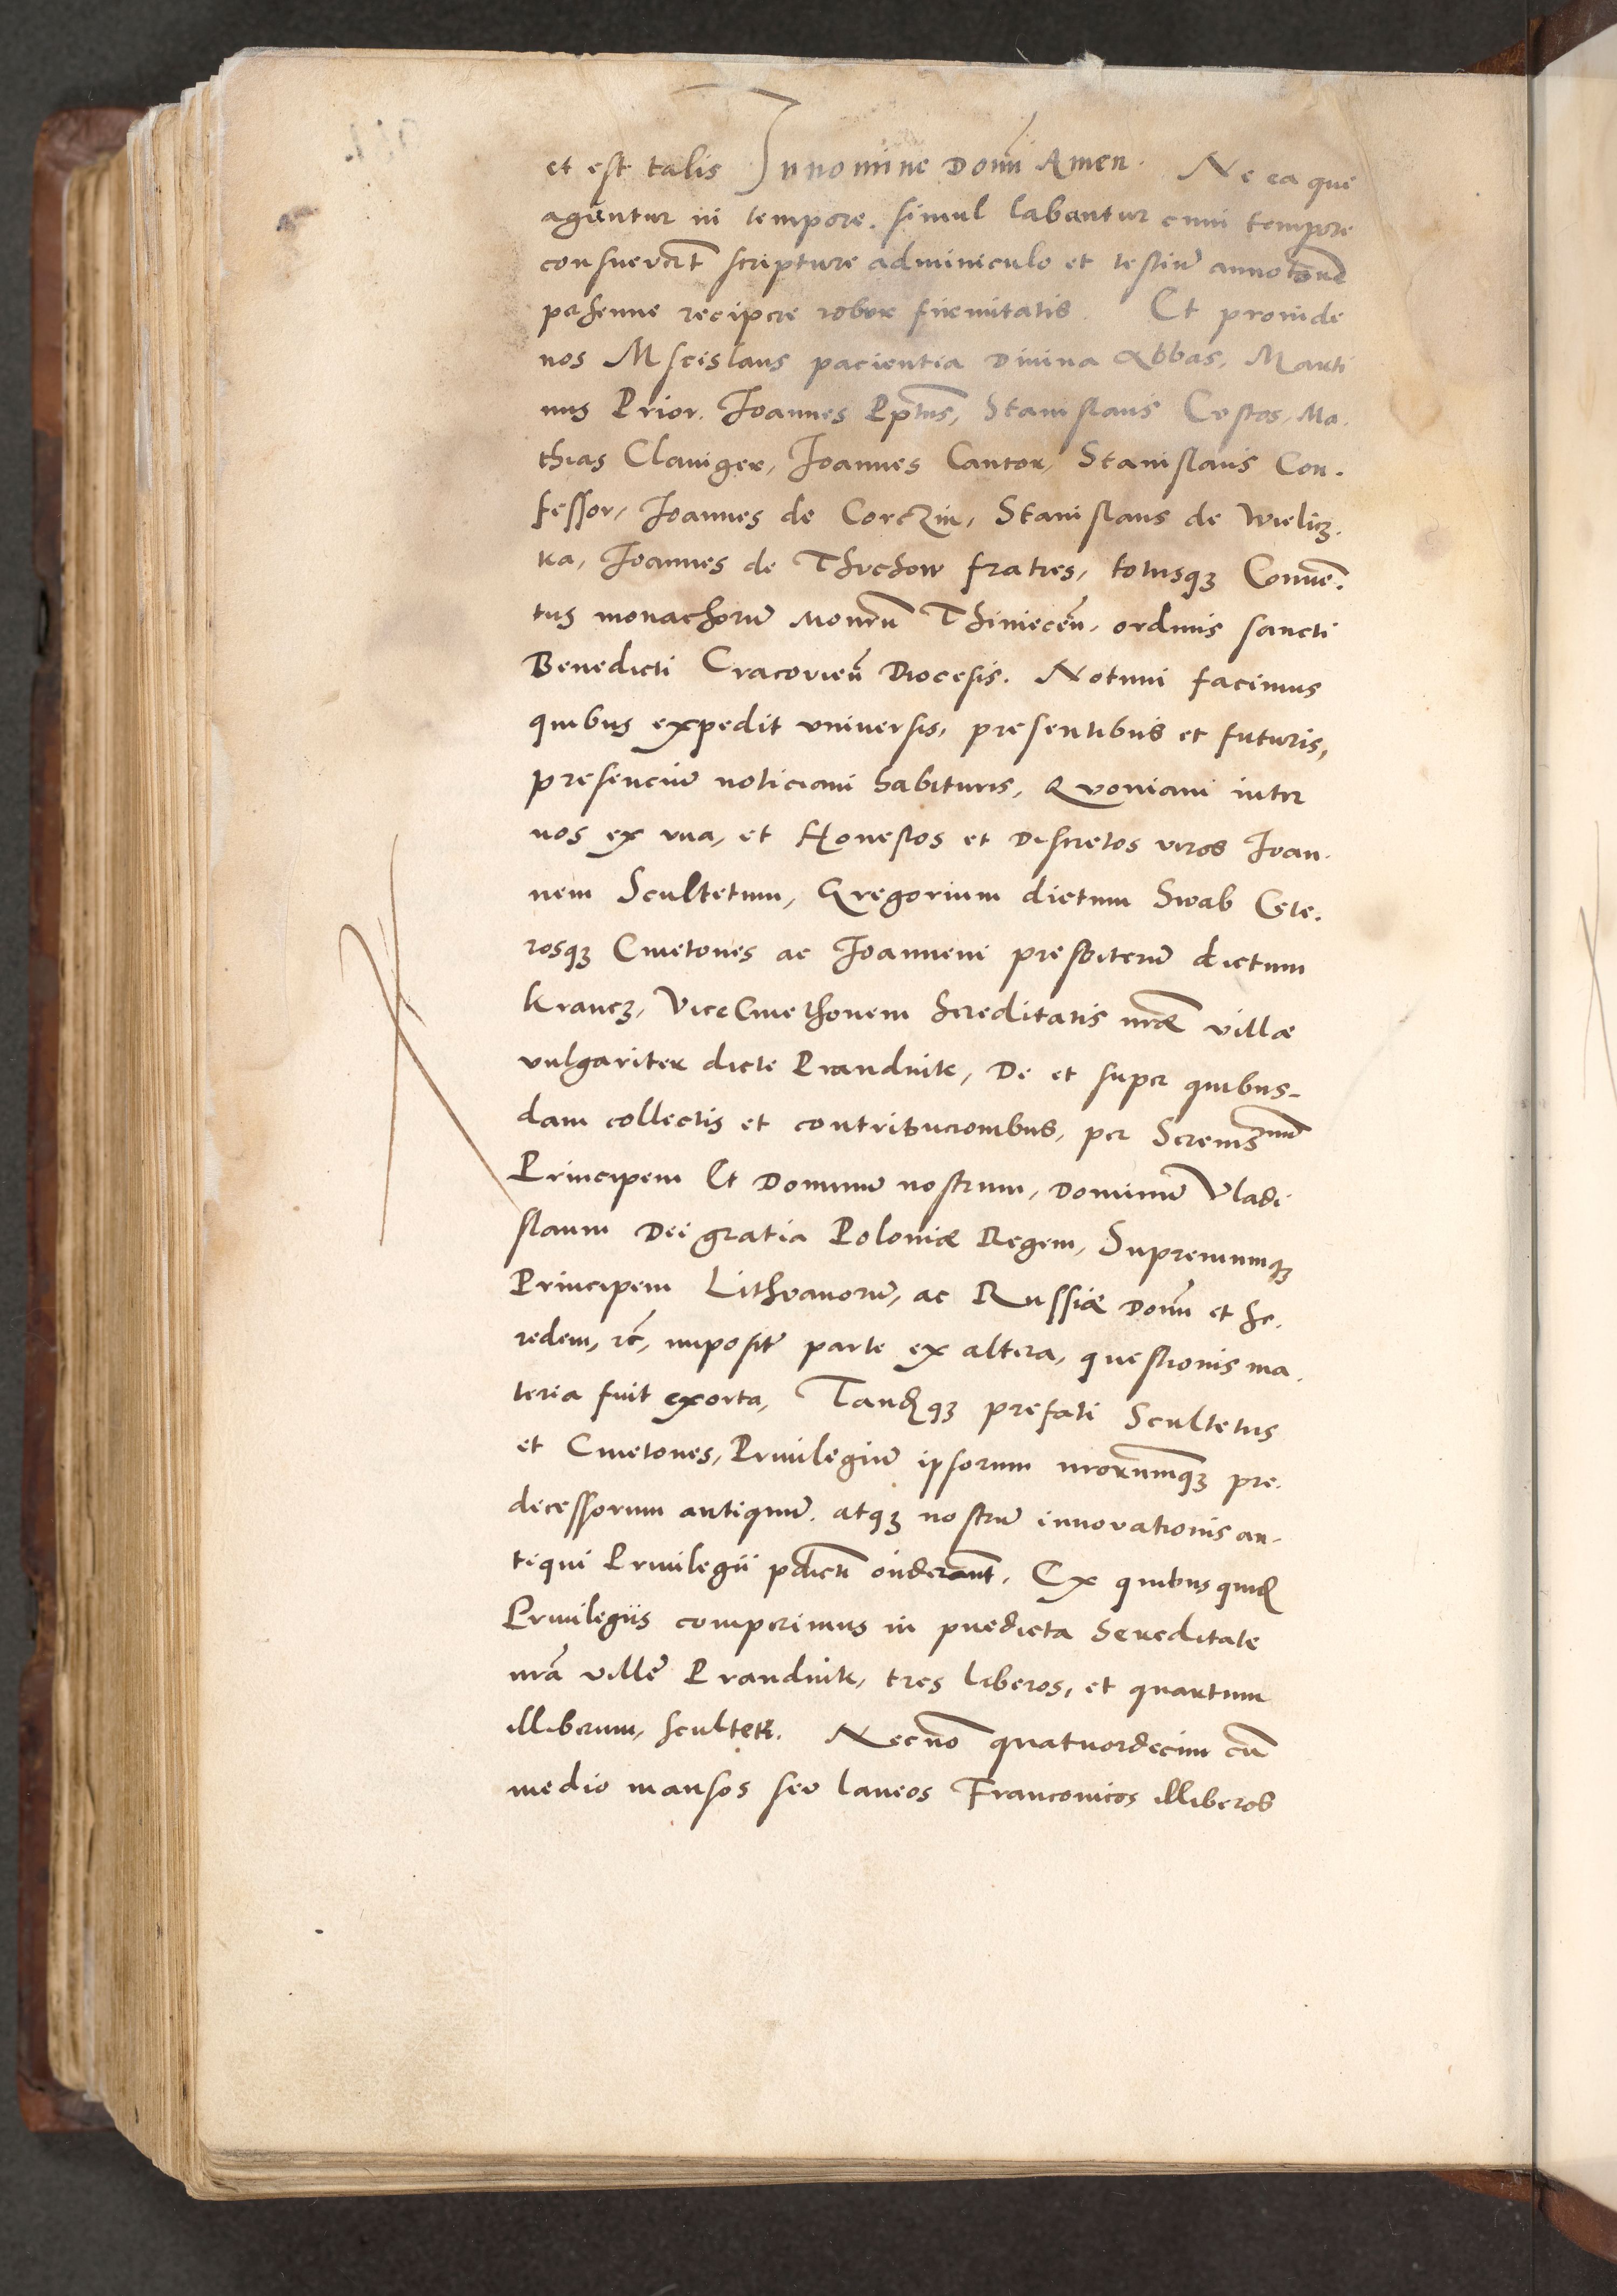 et est talis In nomine Domī Amen. Ne ea que
aguntur in tempore. simul labantur cum tempore
consuever̄t scripture adminiculo et testiū annotōne
perhenne recipere robur firmitatis. Et proinde
nos Mscislaus pacientia Divina Abbas, Marti
nus Prior. Joannes Pp̄tus, Stanislaus Custos, Ma.
thias Claviger, Joannes Cantor, Stanislaus Con.
fessor, Joannes de Corczin, Stanislaus de Wielicz.
ka, Joannes de Thuchow fratres, totusqȝ Conuē.
tus monachorū Monrū Thiniecēn, ordinis sancti
Benedicti Cracovieñ Diocesis. Notum facimus
quibus expedit universis, presentibus et futuris,
presenciū noticiam habituris, Quoniam inter
nos ex una, et Honestos et Discretos viros Joan.
nem Scultetum, Gregorium dictum Swab Cete.
rosqȝ Cmetones ac Joannem presbiterū dictum
Krancȝ, ViceCmethonem hereditatis nræ villæ
vulgariter dicte Prandnik, De et super quibus-
dam collectis et contribucionibus, per Serenissmū
Principem Et Dominū nostrum, Dominū Vladi
slaum Dei gratia Poloniæ Regem, Supremumqȝ
Principem Lithvanorū, ac Russiæ Domī et he.
redem, rc̄, imposit̄ parte ex altera, questionis ma.
teria fuit exorta, Tandqȝ prefati Scultetus
et Cmetones, Privilegiū ipsorum nrorumqȝ pre.
decessorum antiquū. atqȝ nostrū innovationis an-
tiqui Privilegii pdicti ondeŕant. Ex quibus quid
Privilegiis comperimus in predicta hereditate
nrā ville Prandnik, tres liberos, et quartum
illiberum, scultet. Necnō quatuordecim cū
medio mansos seu laneos Franconicos illiberos